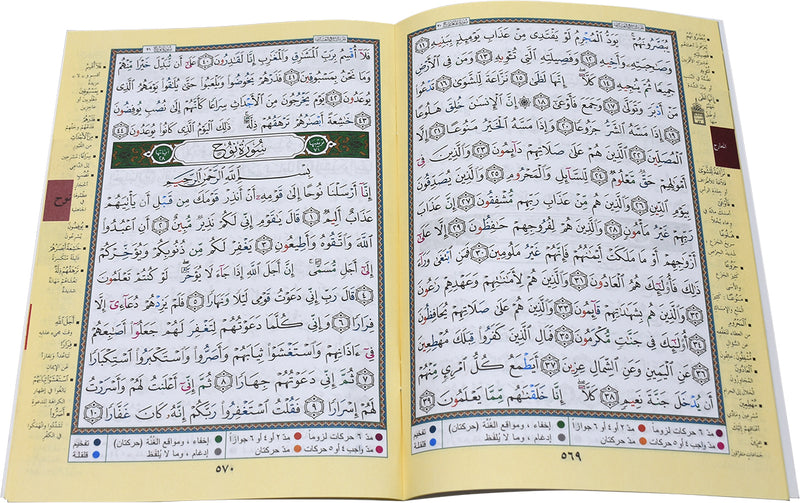 يُبَصَّرُونَهُمْ يَوَدُّ ٱلْمُجْرِمُ لَوْ يَفْتَدِى مِنْ عَذَابِ يَوْمِئِذٍۭ بِبَنِيهِ ١١
وَصَٰحِبَتِهِۦ وَأَخِيهِ ١٢ وَفَصِيلَتِهِ ٱلَّتِى تُـْٔوِيهِ ١٣ وَمَن فِى ٱلْأَرْضِ
جَمِيعًا ثُمَّ يُنجِيهِ ١٤ كَلَّآ إِنَّهَا لَظَىٰ ١٥ نَزَّاعَةً لِّلشَّوَىٰ ١٦ تَدْعُوا۟
مَنْ أَدْبَرَ وَتَوَلَّىٰ ١٧ وَجَمَعَ فَأَوْعَىٰٓ ١٨ ۞ إِنَّ ٱلْإِنسَٰنَ خُلِقَ هَلُوعًا
١٩ إِذَا مَسَّهُ ٱلشَّرُّ جَزُوعًا ٢٠ وَإِذَا مَسَّهُ ٱلْخَيْرُ مَنُوعًا ٢١ إِلَّا
ٱلْمُصَلِّينَ ٢٢ ٱلَّذِينَ هُمْ عَلَىٰ صَلَاتِهِمْ دَآئِمُونَ ٢٣ وَٱلَّذِينَ فِىٓ
أَمْوَٰلِهِمْ حَقٌّ مَّعْلُومٌ ٢٤ لِّلسَّآئِلِ وَٱلْمَحْرُومِ ٢٥ وَٱلَّذِينَ يُصَدِّقُونَ
بِيَوْمِ ٱلدِّينِ ٢٦ وَٱلَّذِينَ هُم مِّنْ عَذَابِ رَبِّهِم مُّشْفِقُونَ ٢٧ إِنَّ عَذَابَ
رَبِّهِمْ غَيْرُ مَأْمُونٍ ٢٨ وَٱلَّذِينَ هُمْ لِفُرُوجِهِمْ حَٰفِظُونَ ٢٩ إِلَّا عَلَىٰٓ
أَزْوَٰجِهِمْ أَوْ مَا مَلَكَتْ أَيْمَٰنُهُمْ فَإِنَّهُمْ غَيْرُ مَلُومِينَ ٣٠ فَمَنِ ٱبْتَغَىٰ وَرَآءَ
ذَٰلِكَ فَأُو۟لَٰٓئِكَ هُمُ ٱلْعَادُونَ ٣١ وَٱلَّذِينَ هُمْ لِأَمَٰنَٰتِهِمْ وَعَهْدِهِمْ رَٰعُونَ
٣٢ وَٱلَّذِينَ هُم بِشَهَٰدَٰتِهِمْ قَآئِمُونَ ٣٣ وَٱلَّذِينَ هُمْ عَلَىٰ صَلَاتِهِمْ يُحَافِظُونَ
٣٤ أُو۟لَٰٓئِكَ فِى جَنَّٰتٍ مُّكْرَمُونَ ٣٥ فَمَالِ ٱلَّذِينَ كَفَرُوا۟ قِبَلَكَ مُهْطِعِينَ
٣٦ عَنِ ٱلْيَمِينِ وَعَنِ ٱلشِّمَالِ عِزِينَ ٣٧ أَيَطْمَعُ كُلُّ ٱمْرِئٍ مِّنْهُمْ
أَن يُدْخَلَ جَنَّةَ نَعِيمٍ ٣٨ كَلَّآ إِنَّا خَلَقْنَٰهُم مِّمَّا يَعْلَمُونَ ٣٩
المعارج
مدّ ٦ حركات لزوماً مدّ ٢ أو ٤ أو ٦ جوازاً إخفاء ، ومواقع الغُنَّة (حركتان) تفخيم
مدّ واجب ٤ أو ٥ حركات مدّ حركتان إدغام ، وما لا يُلفَظ قلقلة
٥٦٩
فَلَآ أُقْسِمُ بِرَبِّ ٱلْمَشَٰرِقِ وَٱلْمَغَٰرِبِ إِنَّا لَقَٰدِرُونَ ٤٠ عَلَىٰٓ أَن نُّبَدِّلَ خَيْرًا مِّنْهُمْ
وَمَا نَحْنُ بِمَسْبُوقِينَ ٤١ فَذَرْهُمْ يَخُوضُوا۟ وَيَلْعَبُوا۟ حَتَّىٰ يُلَٰقُوا۟ يَوْمَهُمُ ٱلَّذِى
يُوعَدُونَ ٤٢ يَوْمَ يَخْرُجُونَ مِنَ ٱلْأَجْدَاثِ سِرَاعًا كَأَنَّهُمْ إِلَىٰ نُصُبٍ يُوفِضُونَ
٤٣ خَٰشِعَةً أَبْصَٰرُهُمْ تَرْهَقُهُمْ ذِلَّةٌ ذَٰلِكَ ٱلْيَوْمُ ٱلَّذِى كَانُوا۟ يُوعَدُونَ ٤٤
سُورَةُ نُوحٍ
بِسْمِ ٱللَّهِ ٱلرَّحْمَٰنِ ٱلرَّحِيمِ
إِنَّآ أَرْسَلْنَا نُوحًا إِلَىٰ قَوْمِهِۦٓ أَنْ أَنذِرْ قَوْمَكَ مِن قَبْلِ أَن يَأْتِيَهُمْ
عَذَابٌ أَلِيمٌ ١ قَالَ يَٰقَوْمِ إِنِّى لَكُمْ نَذِيرٌ مُّبِينٌ ٢ أَنِ ٱعْبُدُوا۟
ٱللَّهَ وَٱتَّقُوهُ وَأَطِيعُونِ ٣ يَغْفِرْ لَكُم مِّن ذُنُوبِكُمْ وَيُؤَخِّرْكُمْ
إِلَىٰٓ أَجَلٍ مُّسَمًّى إِنَّ أَجَلَ ٱللَّهِ إِذَا جَآءَ لَا يُؤَخَّرُ لَوْ كُنتُمْ تَعْلَمُونَ
٤ قَالَ رَبِّ إِنِّى دَعَوْتُ قَوْمِى لَيْلًا وَنَهَارًا ٥ فَلَمْ يَزِدْهُمْ دُعَآءِىٓ إِلَّا
فِرَارًا ٦ وَإِنِّى كُلَّمَا دَعَوْتُهُمْ لِتَغْفِرَ لَهُمْ جَعَلُوٓا۟ أَصَٰبِعَهُمْ
فِىٓ ءَاذَانِهِمْ وَٱسْتَغْشَوْا۟ ثِيَابَهُمْ وَأَصَرُّوا۟ وَٱسْتَكْبَرُوا۟ ٱسْتِكْبَارًا
٧ ثُمَّ إِنِّى دَعَوْتُهُمْ جِهَارًا ٨ ثُمَّ إِنِّىٓ أَعْلَنتُ لَهُمْ وَأَسْرَرْتُ
لَهُمْ إِسْرَارًا ٩ فَقُلْتُ ٱسْتَغْفِرُوا۟ رَبَّكُمْ إِنَّهُۥ كَانَ غَفَّارًا ١٠
نوح
مدّ ٦ حركات لزوماً مدّ ٢ أو ٤ أو ٦ جوازاً إخفاء ، ومواقع الغُنَّة (حركتان) تفخيم
مدّ واجب ٤ أو ٥ حركات مدّ حركتان إدغام ، وما لا يُلفَظ قلقلة
٥٧٠